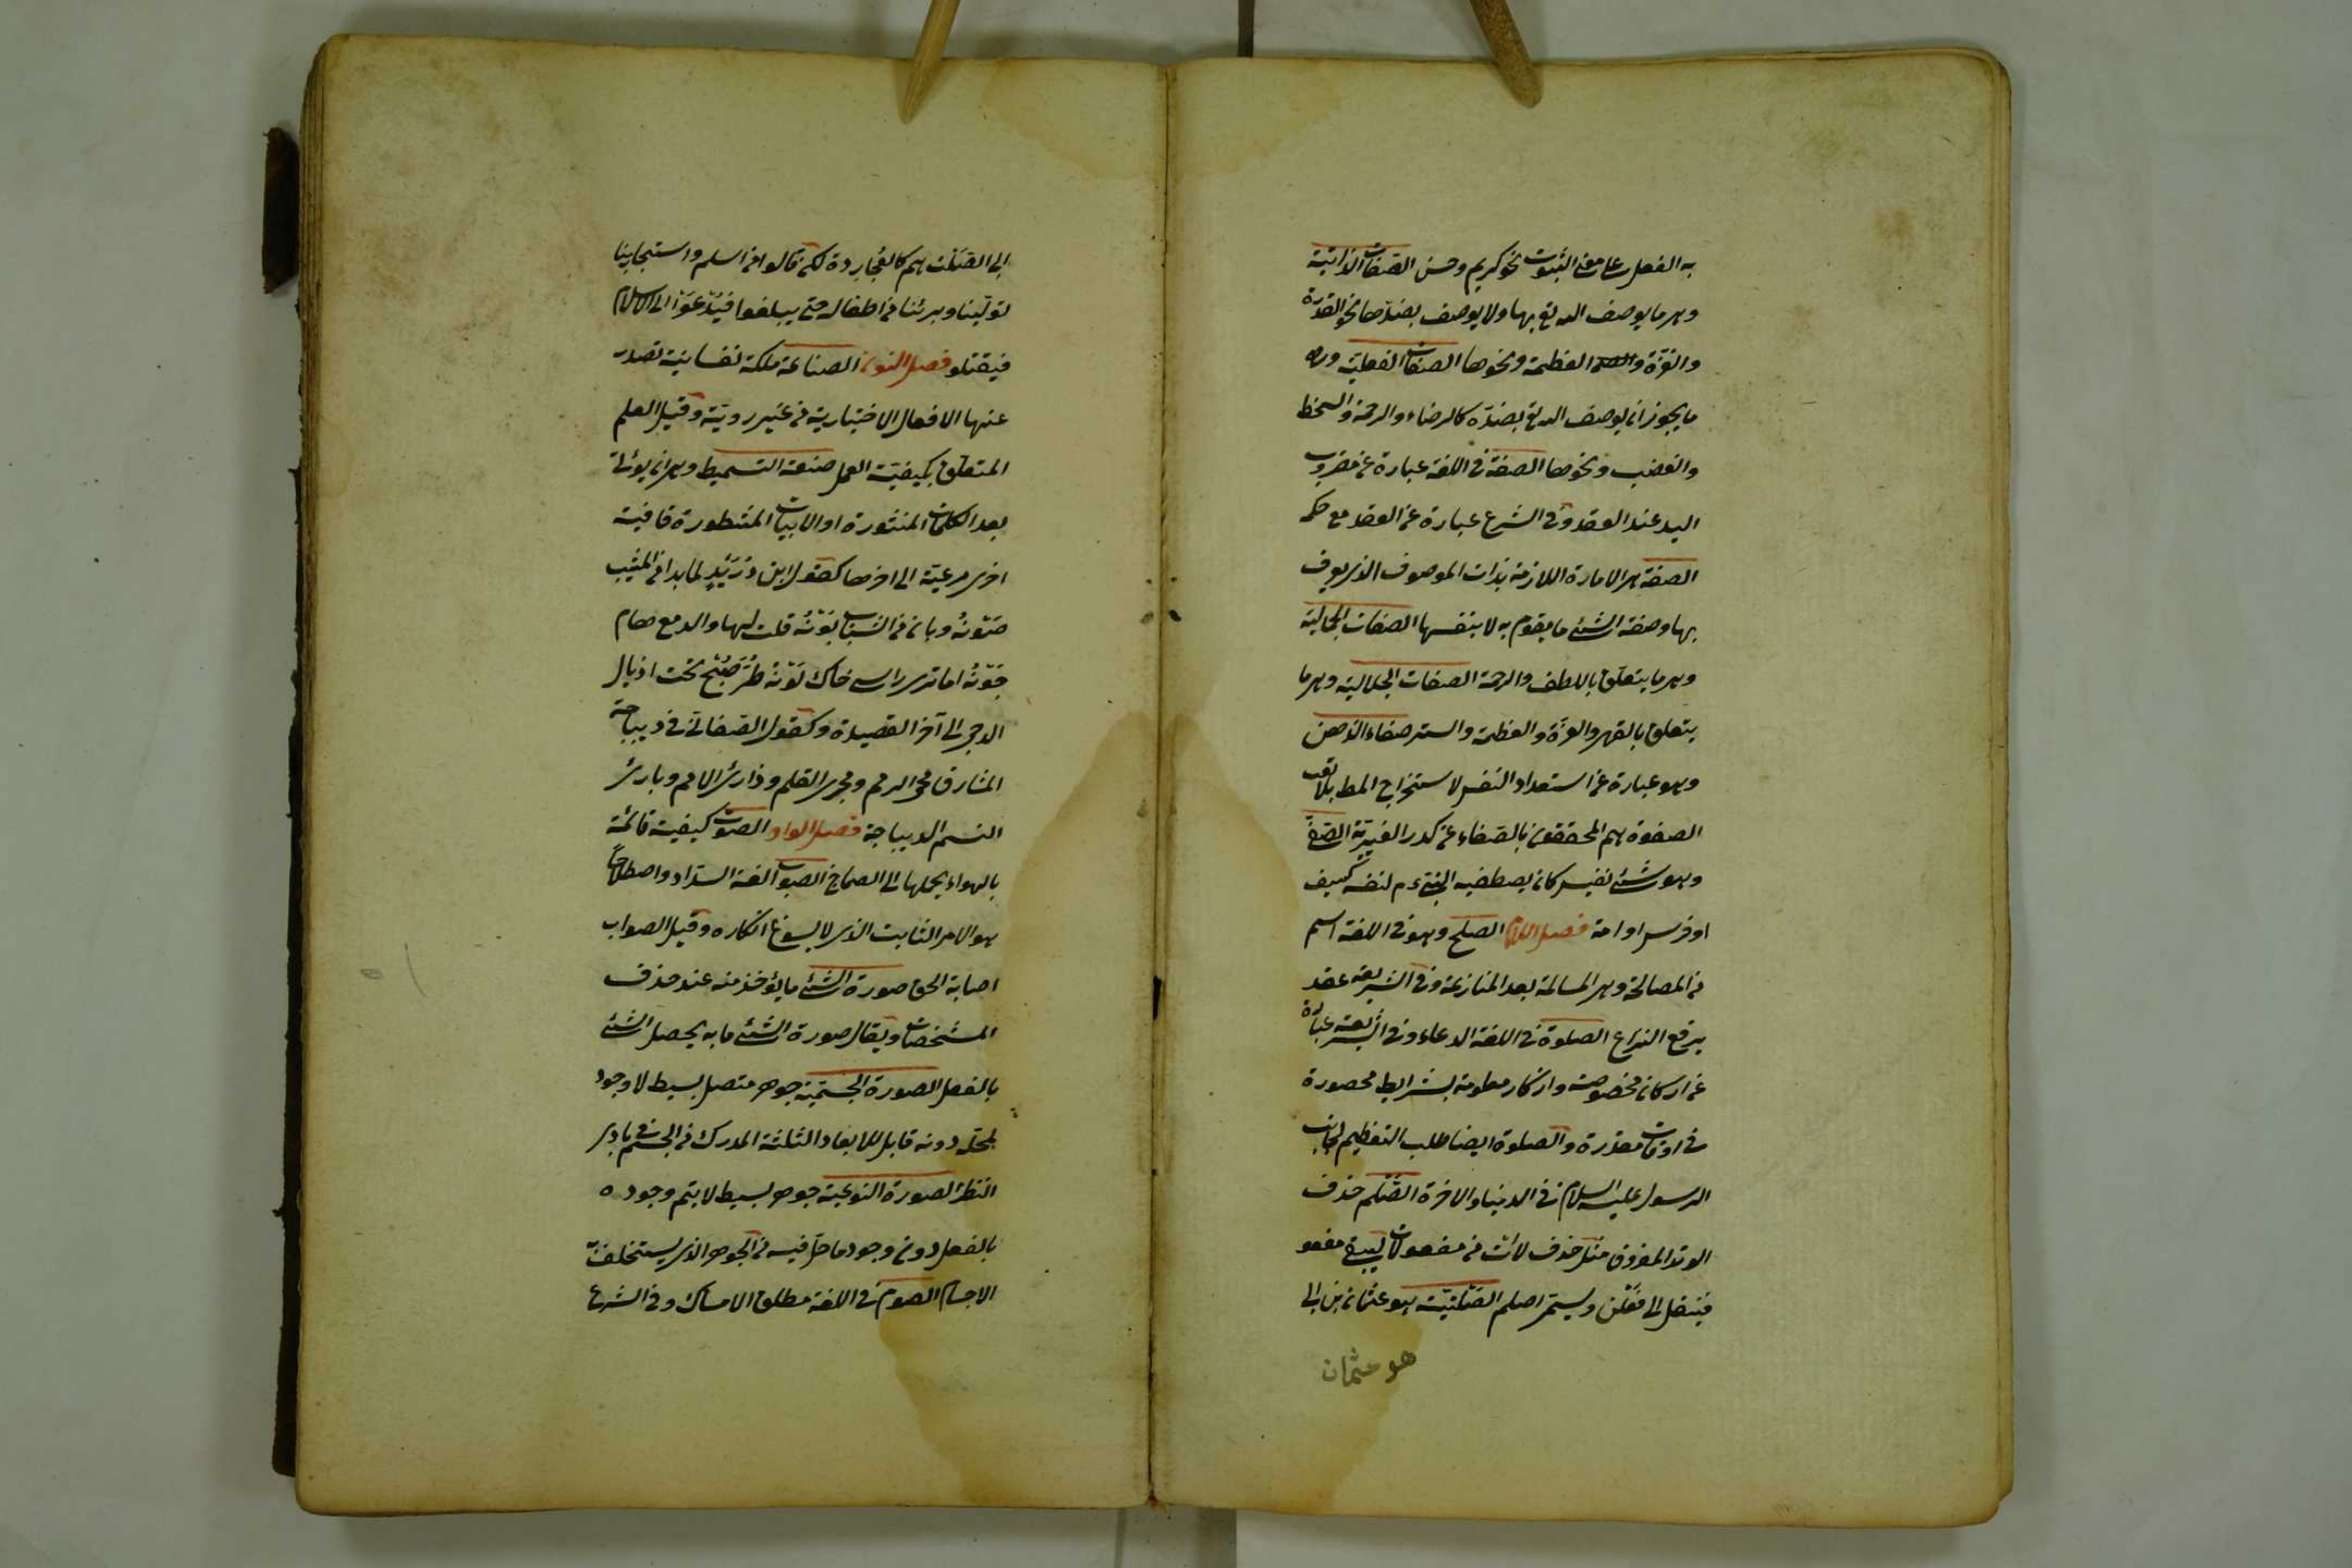 به الفعل على معنى الثبوت نحو كريم وحسن الصفات الذاتية
وهى ما يوصف الله تع بها ولا يوصف بضدها نحو القدرة
والعزة والعظمة ونحوها الصفات الفعلية وهى
ما يجوز ان يوصف الله تع بضده كالرضاء والرحمة والسخط
والغضب ونحوها الصفقة فى اللغة عبارة عن ضرب
اليد عند العقد وفى الشرع عبارة عن العقد مع حكم
الصفة هى الامارة اللازمة بذات الموصوف الذى يعرف
بها وصفة الشئ ما يقوم به لا بنفسها الصفات الجمالية
وهى ما يتعلق باللطف والرحمة الصفات الجلالية وهى ما
يتعلق بالقهر والعزة والعظمة والستر صفاء الذهن
وهو عبارة عن استعداد النفس لاستخراج المط بلا تعب
الصفوة هم المحققون بالصفاء عن كدر الغيرية الصفى
وهو شئ نفيس كان يصطفيه النبى ءم لنفسه كسيف
او فرس او امة فصل اللام الصلح وهو فى اللغة اسم
من المصالحة وهى المسالمة بعد المنازعة وفى الشريعة عقد
يرفع النزاع الصلوة فى اللغة الدعاء وفى الشريعة عبارة
عن اركان مخصوصة واذكار معلومة بشرايط محصورة
فى اوقات مقدرة والصلوة ايضا طلب التعظيم لجانب
الرسول عليه السلام فى الدنيا والاخرة الصلم حذف
الوتد المفروق مثل حذف لات من مفعولات ليبقى مفعو
فينقل الى فعلن ويسمى اصلم الصلتية هو عثمان بن ابى
هو عثمان
ابى الصلت هم كالعجاردة لكن قالوا من اسلم واستجار بنا
توليناه وبرئنا من اطفاله حتى يبلغوا فيدعوا الى الاسلام
فيقبلو فصل النون الصناعة ملكة نفسانية تصدر
عنها الافعال الاختيارية من غير روية وقيل العلم
المتعلق بكيفية العمل صنعة التسميط وهى ان يؤتى
بعد الكلمات المنثورة او الابيات المشطورة قافية
اخرى مرعية الى اخرها كقول ابن دُرَيْدٍ لما بدا من المشيب
صَوْنُه وبان من الشباب بَوْنُه قلت لها والدمع هام
جَوْنُه اما ترى راسى حاك لَوْنُه طرة صُبْح تحت اذيال
الدجى الى آخر القصيدة وكقول الصغانى فى ديباجة
المشارق محى الرمم ومجرى القلم وذارئ الامم وبارئ
النسم الديباجة فصل الواو الصوت كيفية قائمة
بالهواء يحملها الى الصماخ الصواب لغة السداد واصطلاحاً
هو الامر الثابت الذى لا يسوغ انكاره وقيل الصواب
اصابة الحق صورة الشئ ما يؤخذ منه عند حذف
المشخصات ويقال صورة الشئ ما به يحصل الشئ
بالفعل الصورة الجسمية جوهر متصل بسيط لا وجود
لمحله دونه قابل للابعاد الثلثة المدرك من الجسم فى بادى
النظر الصورة النوعية جوهر بسيط لا يتم وجوده
بالفعل دون وجود ما حل فيه من الجوهر الذى
الاجسام الصوم فى اللغة مطلق الامساك وفى الشرع